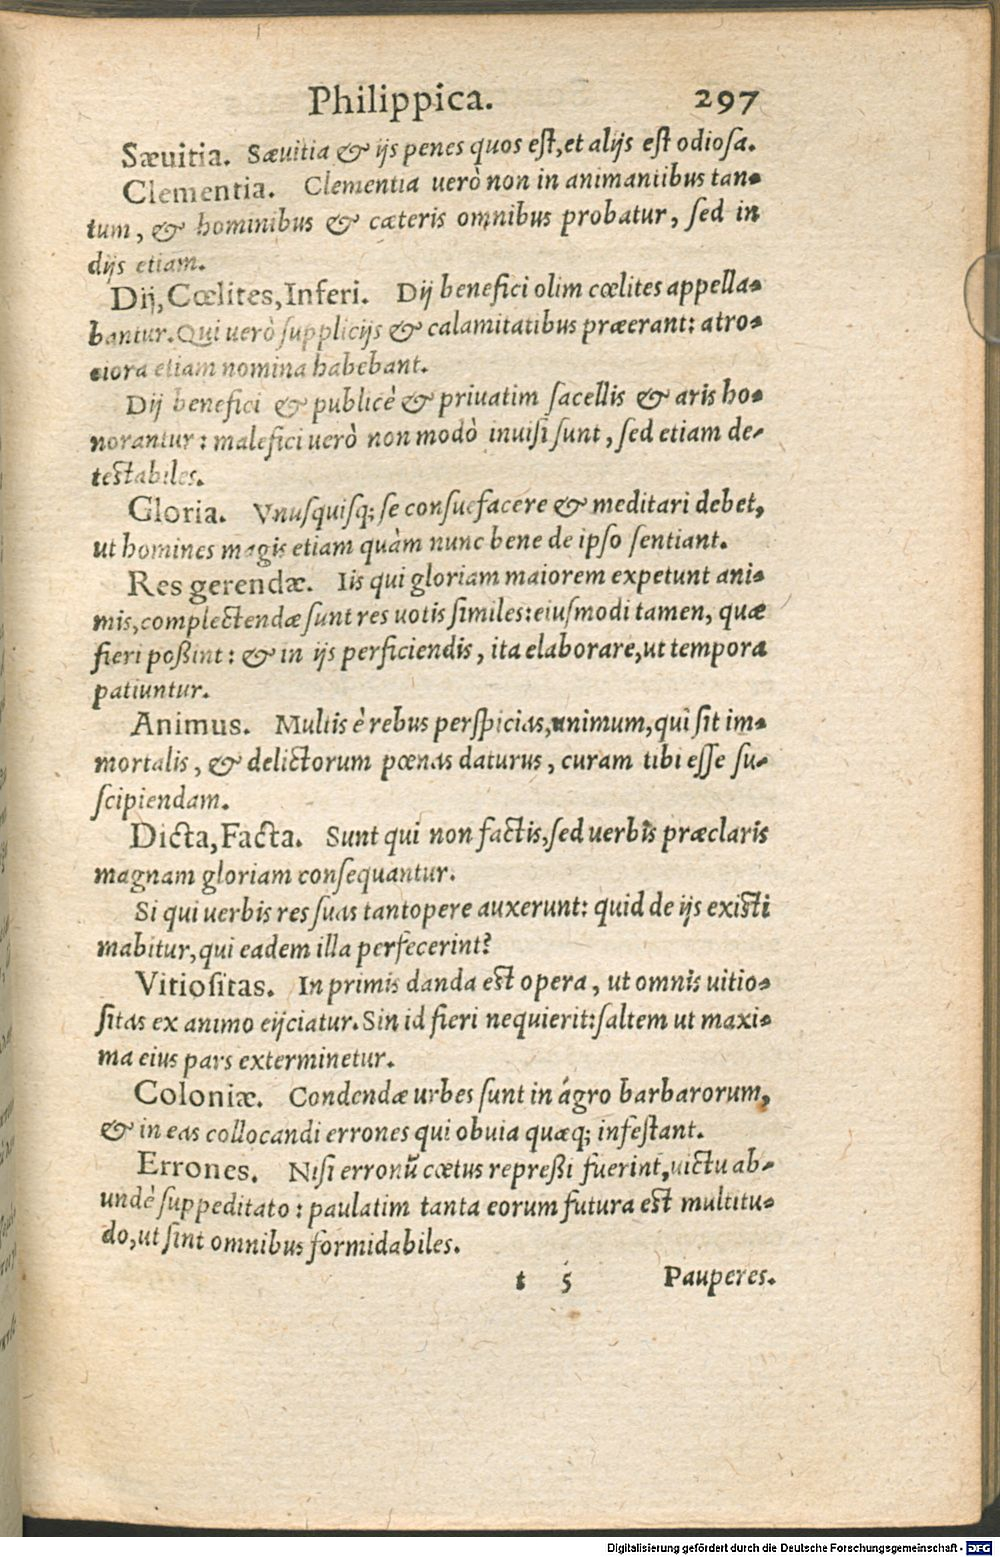 Philippica. 297
Sæuitia. Sæuitia & ijs penes quos eſt, et alijs eſt odioſa.
Clementia. Clementia uerò non in animantibus tan-
tum, & hominibus & cæteris omnibus probatur, ſed in
dijs etiam.
Dij, Cœlites, Inferi. Dij benefici olim cœlites appella-
bantur. Qui uerò ſupplicijs & calamitatibus præerant: atro-
ciora etiam nomina habebant.
Dij benefici & publicè & priuatim ſacellis & aris ho-
norantur: malefici uerò non modò inuiſi ſunt, ſed etiam de-
teſtabiles.
Gloria. Vnuſquiſq; ſe conſuefacere & meditari debet,
ut homines magis etiam quàm nunc bene de ipſo ſentiant.
Res gerendæ. Iis qui gloriam maiorem expetunt ani-
mis, complectendæ ſunt res uotis ſimiles: eiuſmodi tamen, quæ
fieri poßint: & in ijs perficiendis, ita elaborare, ut tempora
patiuntur.
Animus. Multis è rebus perſpicias, animum, qui ſit im-
mortalis, & delictorum pœnas daturus, curam tibi eſſe ſu-
ſcipiendam.
Dicta, Facta. Sunt qui non factis, ſed uerbis præclaris
magnam gloriam conſequantur.
Si qui uerbis res ſuas tantopere auxerunt: quid de ijs exiſti
mabitur, qui eadem illa perfecerint?
Vitioſitas. In primis danda eſt opera, ut omnis uitio-
ſitas ex animo eijciatur. Sin id fieri nequierit: ſaltem ut maxi-
ma eius pars exterminetur.
Coloniæ. Condendæ urbes ſunt in agro barbarorum,
& in eas collocandi errones qui obuia quæq; infeſtant.
Errones. Niſi erronũ cœtus repreßi fuerint, uictu ab-
undè ſuppeditato: paulatim tanta eorum futura eſt multitu-
do, ut ſint omnibus formidabiles.
t 5 Pauperes.
Digitalisierung gefördert durch die Deutsche Forschungsgemeinschaft - DFG